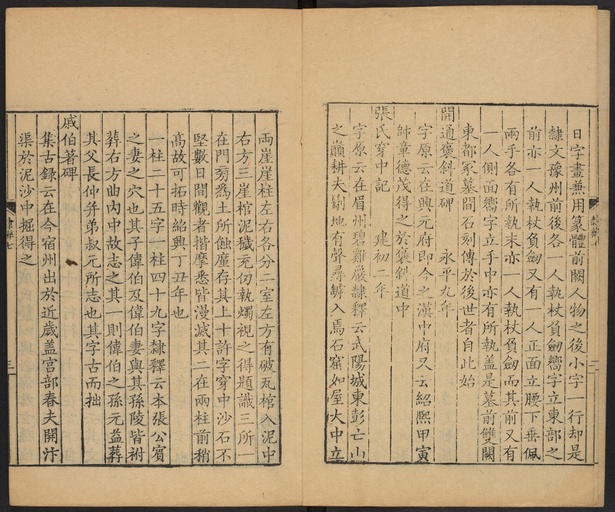 日字畫無用篆體前闕人物之後小字一行却是
隸文豫州前後各一人執杖負劒嚮字立東部之
前亦一人執杖負劒又有一人正面立腰下垂佩
兩手各有所執末亦一人執杖負劒而其前又有
一人側面嚮字立手中亦有所執盖是墓前雙闕
東都冢墓間石刻傳於後世者自此始
開通褒斜道碑 永平九年
字原云在興元府即今之漢中府又云紹熙甲寅
帥章德茂得之於褒斜道中
張氏穿中記 建初二年
字原云在眉州碧雞巖隸釋云武陽城東彭亡山
之巔耕夫劚地有聲尋罅入焉石窟如屋大中立
兩崖崖柱左右各分二室左方有破瓦棺入泥中
右方三崖棺泥穢充仞執燭視之得題識三所一
在門㫄爲土所蝕䕷存其上十許字穿中沙石不
堅數日間觀者揩摩悉皆漫滅其二在兩柱前稍
高故可拓時紹興丁丑年也
一柱二十五字一柱四十九字隸釋云本張公賓
之妻之穴也其子偉伯及偉伯妻與其孫陵皆袝
葬右方曲内中故志之其一則偉伯之孫元益葬
其父長仲并弟叔元所志也其字古而拙
戚伯著碑
集古錄云在今宿州出於近歲盖宫部春夫開汴
渠於泥沙中掘得之